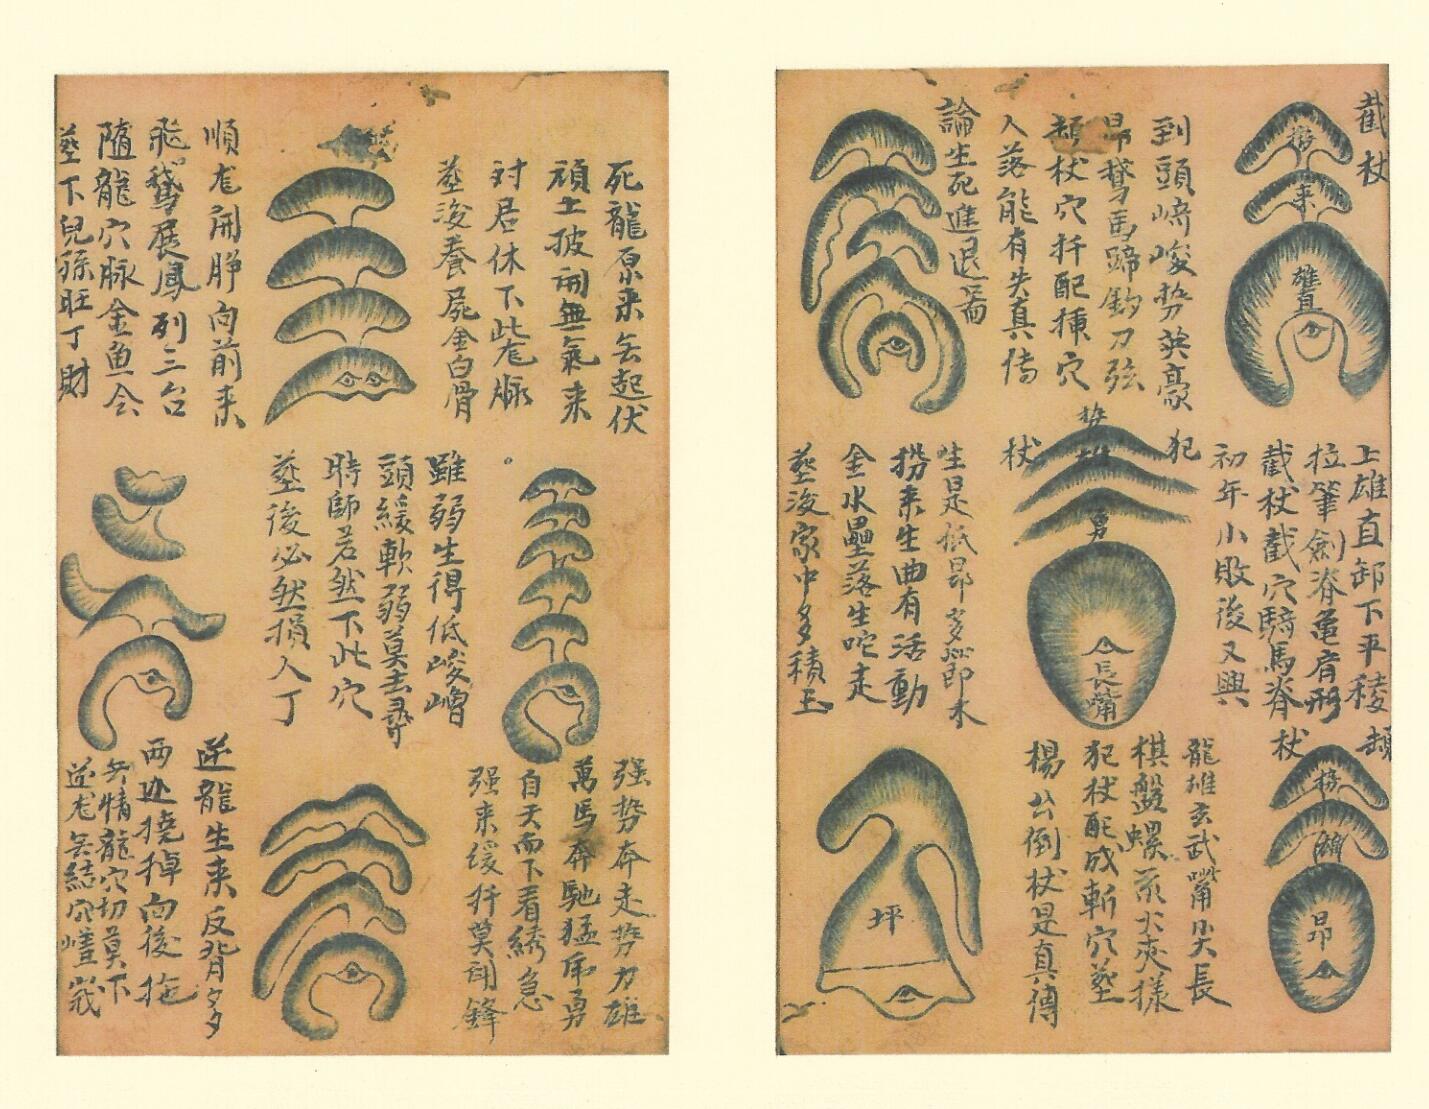 截杖
榜
来
雄直
到頭崎峻势英豪
昂鵞馬蹄鈎刀弦
頓杖穴扦配插穴
人落能有失真傳
論生死進退篇
上雄直卸下平稜
拉筆劍脊亀肩形
截杖截穴騎馬脊
初年小敗後又興
犯
杖
势
勇
長嘴
生是低昂多屈即水
擺来生曲有活動
金水壘落生吃走
塟後家中多積玉
頓
杖
昂
龍雄玄武嘴尖長
棋盤螺泵火夾樣
犯杖配成斬穴塟
楊公倒杖是真傳
坪
死龍原来无起伏
頑土披開無氣来
对君休下此龙脉
塟後養屍金白骨
順龙開睁向前来
飛鵞展鳳列三台
随龍穴脉金鱼会
塟下兒孫旺丁財
雖弱生得低峻嶒
頭緩軟弱莫去尋
時師若然下此穴
塟後必然損人丁
强势奔走势力雄
萬馬奔馳猛帝勇
自天而下看綉急
强来缓扦莫開鋒
逆龍生来反背多
两边撓掉向後拖
無情龍穴切莫下
逆龙無結穴嵯峩